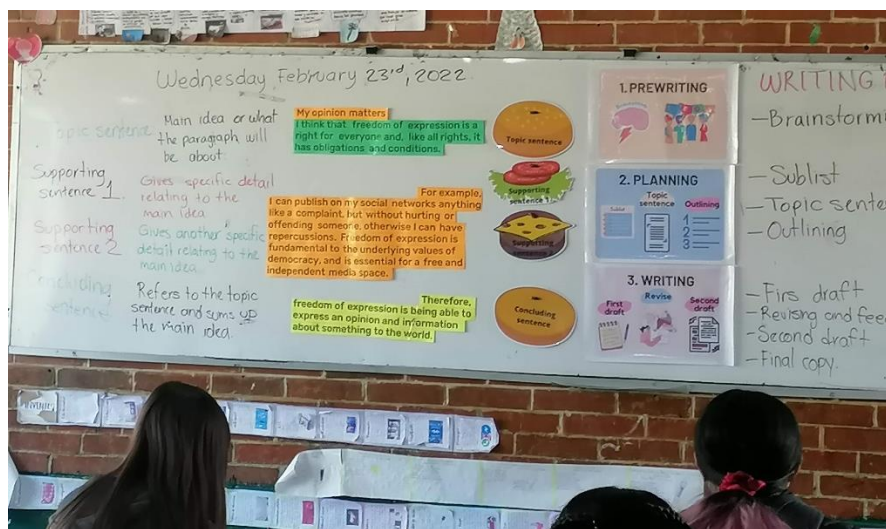 Wednesday February 23rd, 2022
Topic sentence
Main idea or what
the paragraph will
be about
Supporting
sentence 1.
Gives specific detail
relating to the
main idea
Supporting
sentence 2
Gives another specific
detail relating to the
main idea.
Concluding
sentence
Refers to the topic
sentence and sums up
the main idea.
My opinion matters
I think that freedom of expression is a
right for everyone and, like all rights, it
has obligations and conditions.
For example,
I can publish on my social networks anything
like a complaint, but without hurting or
offending someone, otherwise I can have
repercussions. Freedom of expression is
fundamental to the underlying values of
democracy, and is essential for a free and
independent media space.
Therefore,
freedom of expression is being able to
express an opinion and information
about something to the world.
Topic sentence
Supporting
sentence 1
Supporting
sentence 2
Concluding
sentence
1. PREWRITING
2. PLANNING
Topic
sentence
Outlining
Sublist
1
2
3
3. WRITING
First
draft
Revise
Second
draft
WRITING
- Brainstormi
- Sublist
- Topic sente
- Outlining
- Firs draft
- Revising and fee
- Second draft
- Final copy.